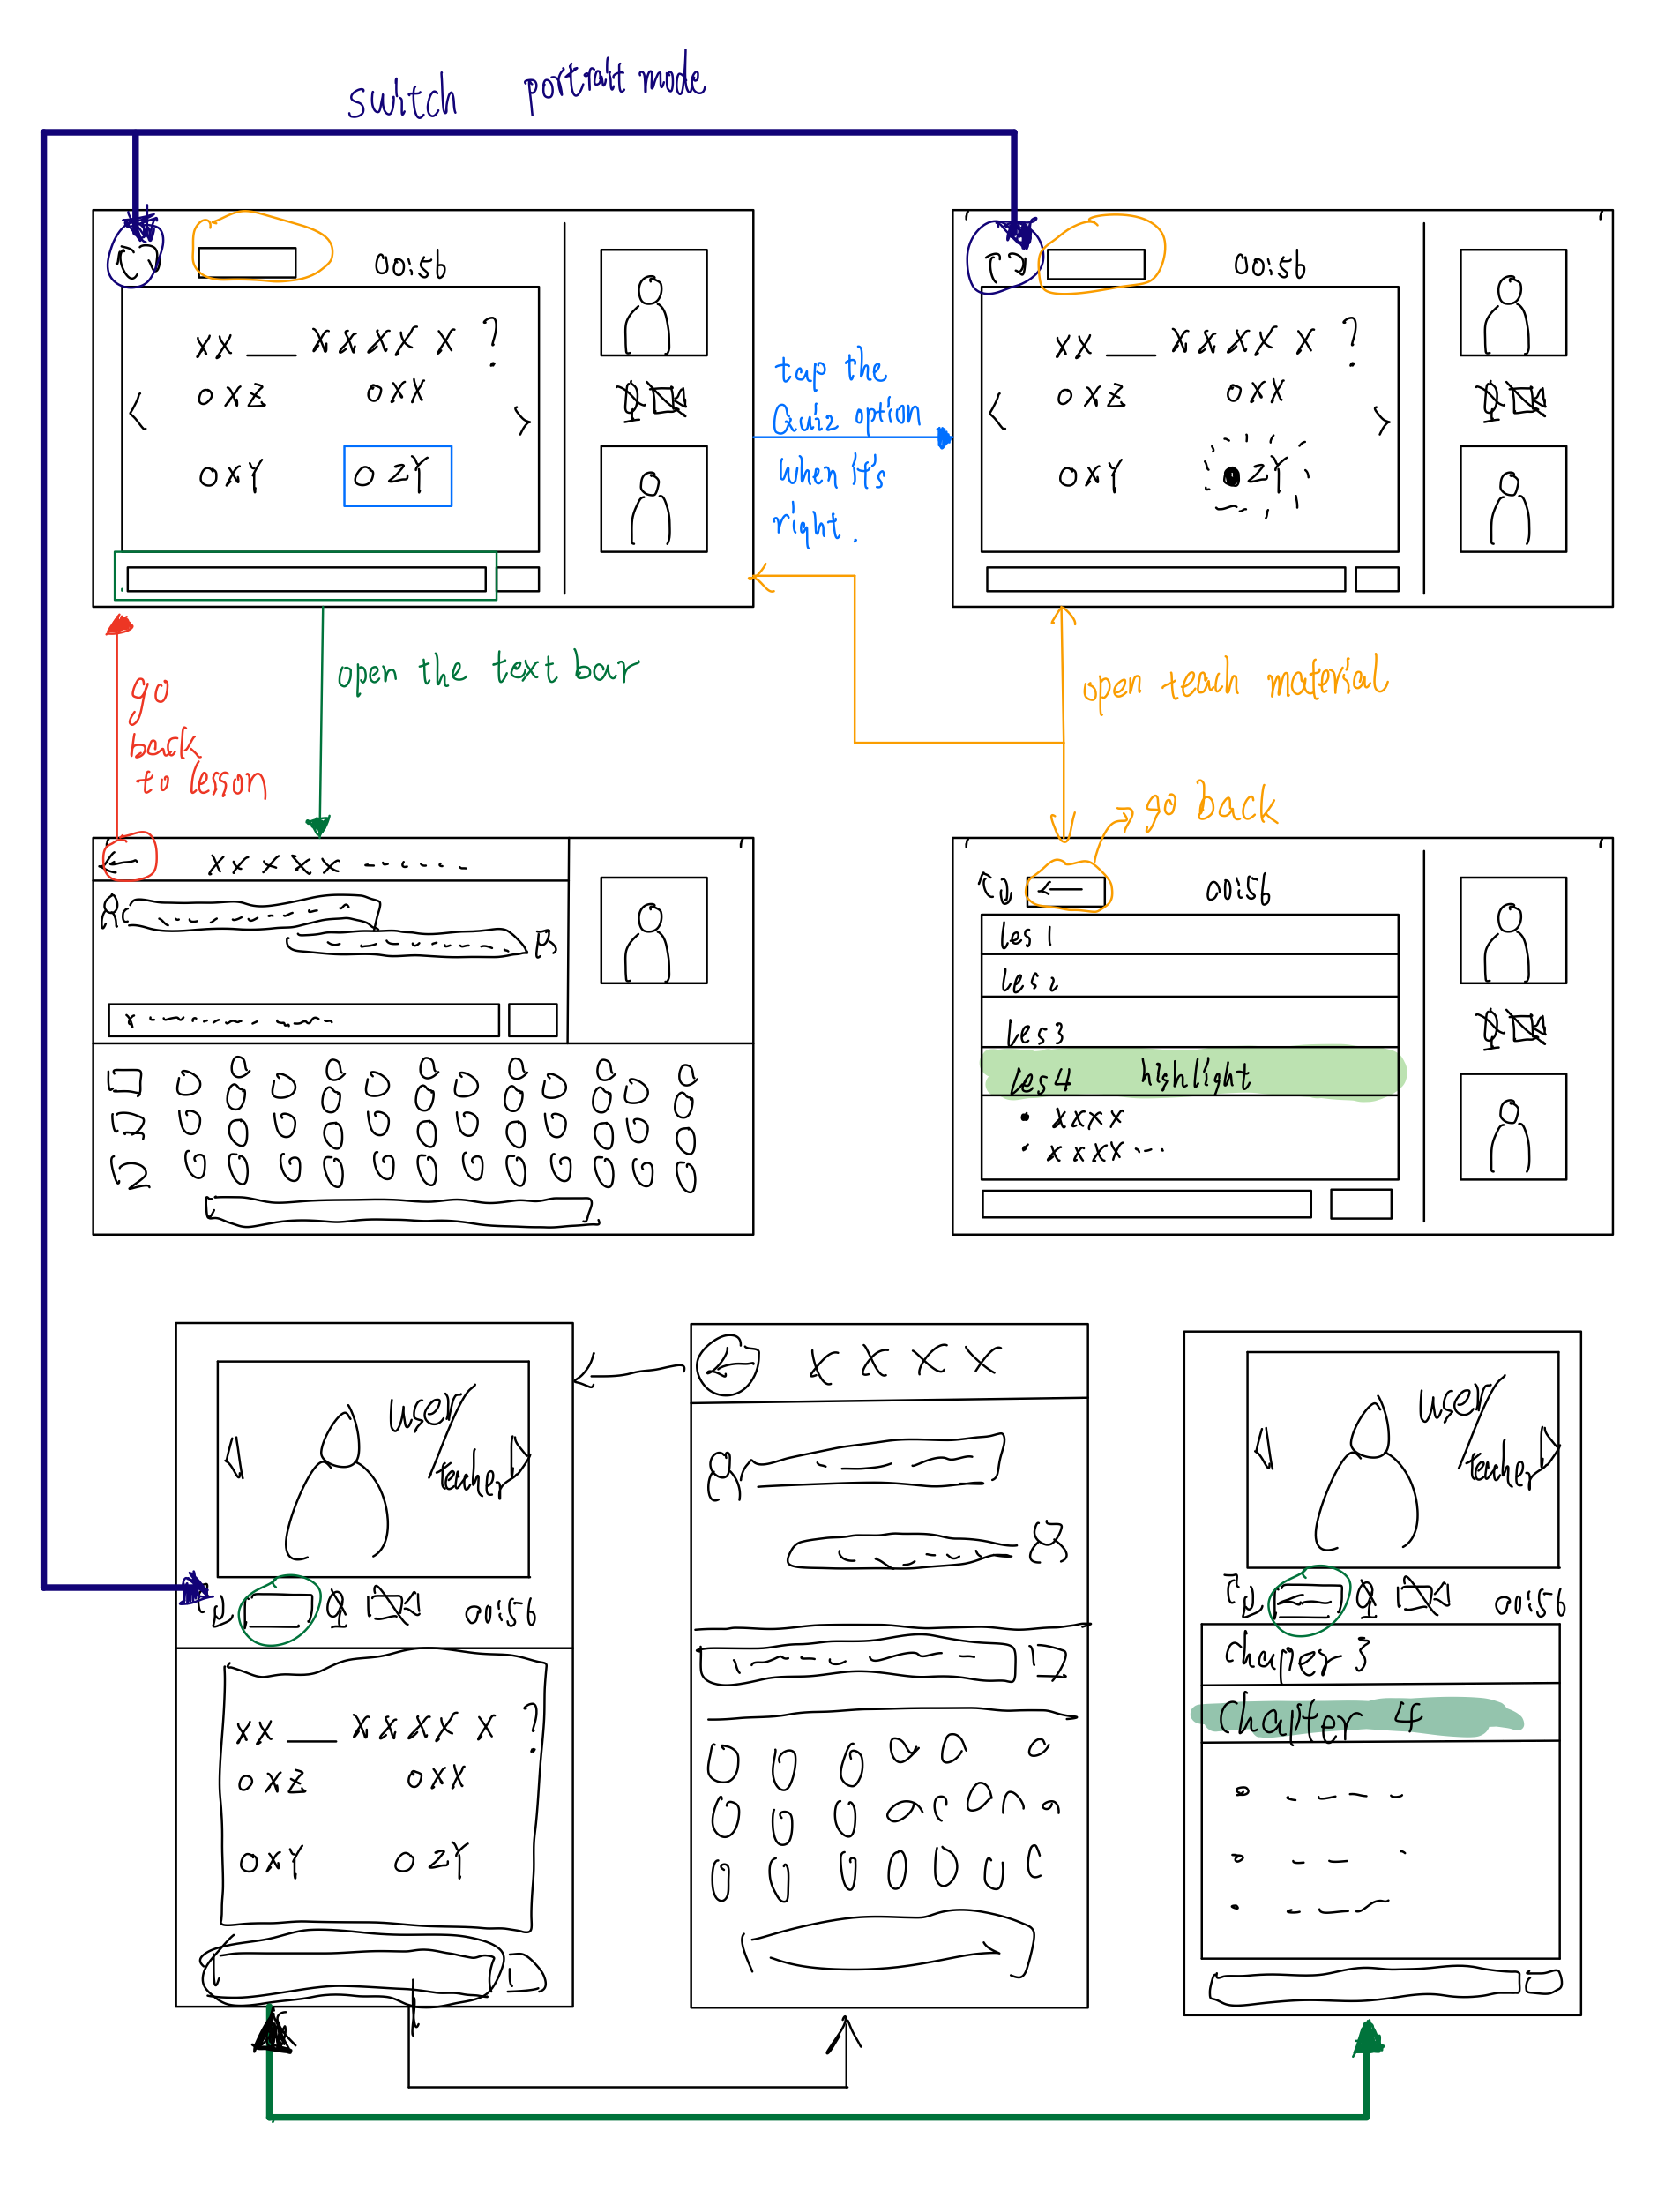 switch portrait mode
00:56
xx ___ xxxx x ?
o xz o xx
o xY o zY
tap the
Quiz option
when it's
right.
00:56
xx ___ xxxx x ?
o xz o xx
o xY zY
go
back
to lesson
open the text bar
open teach material
go back
x x x x x
00:56
les 1
les 2
les 3
les 4 highlight
xxxx
xxxx ...
user/
teacher
00:56
xx ___ xxxx x ?
o xz o xx
o xY o zY
x x x x
user/
teacher
00:56
chaper 3
Chapter 4